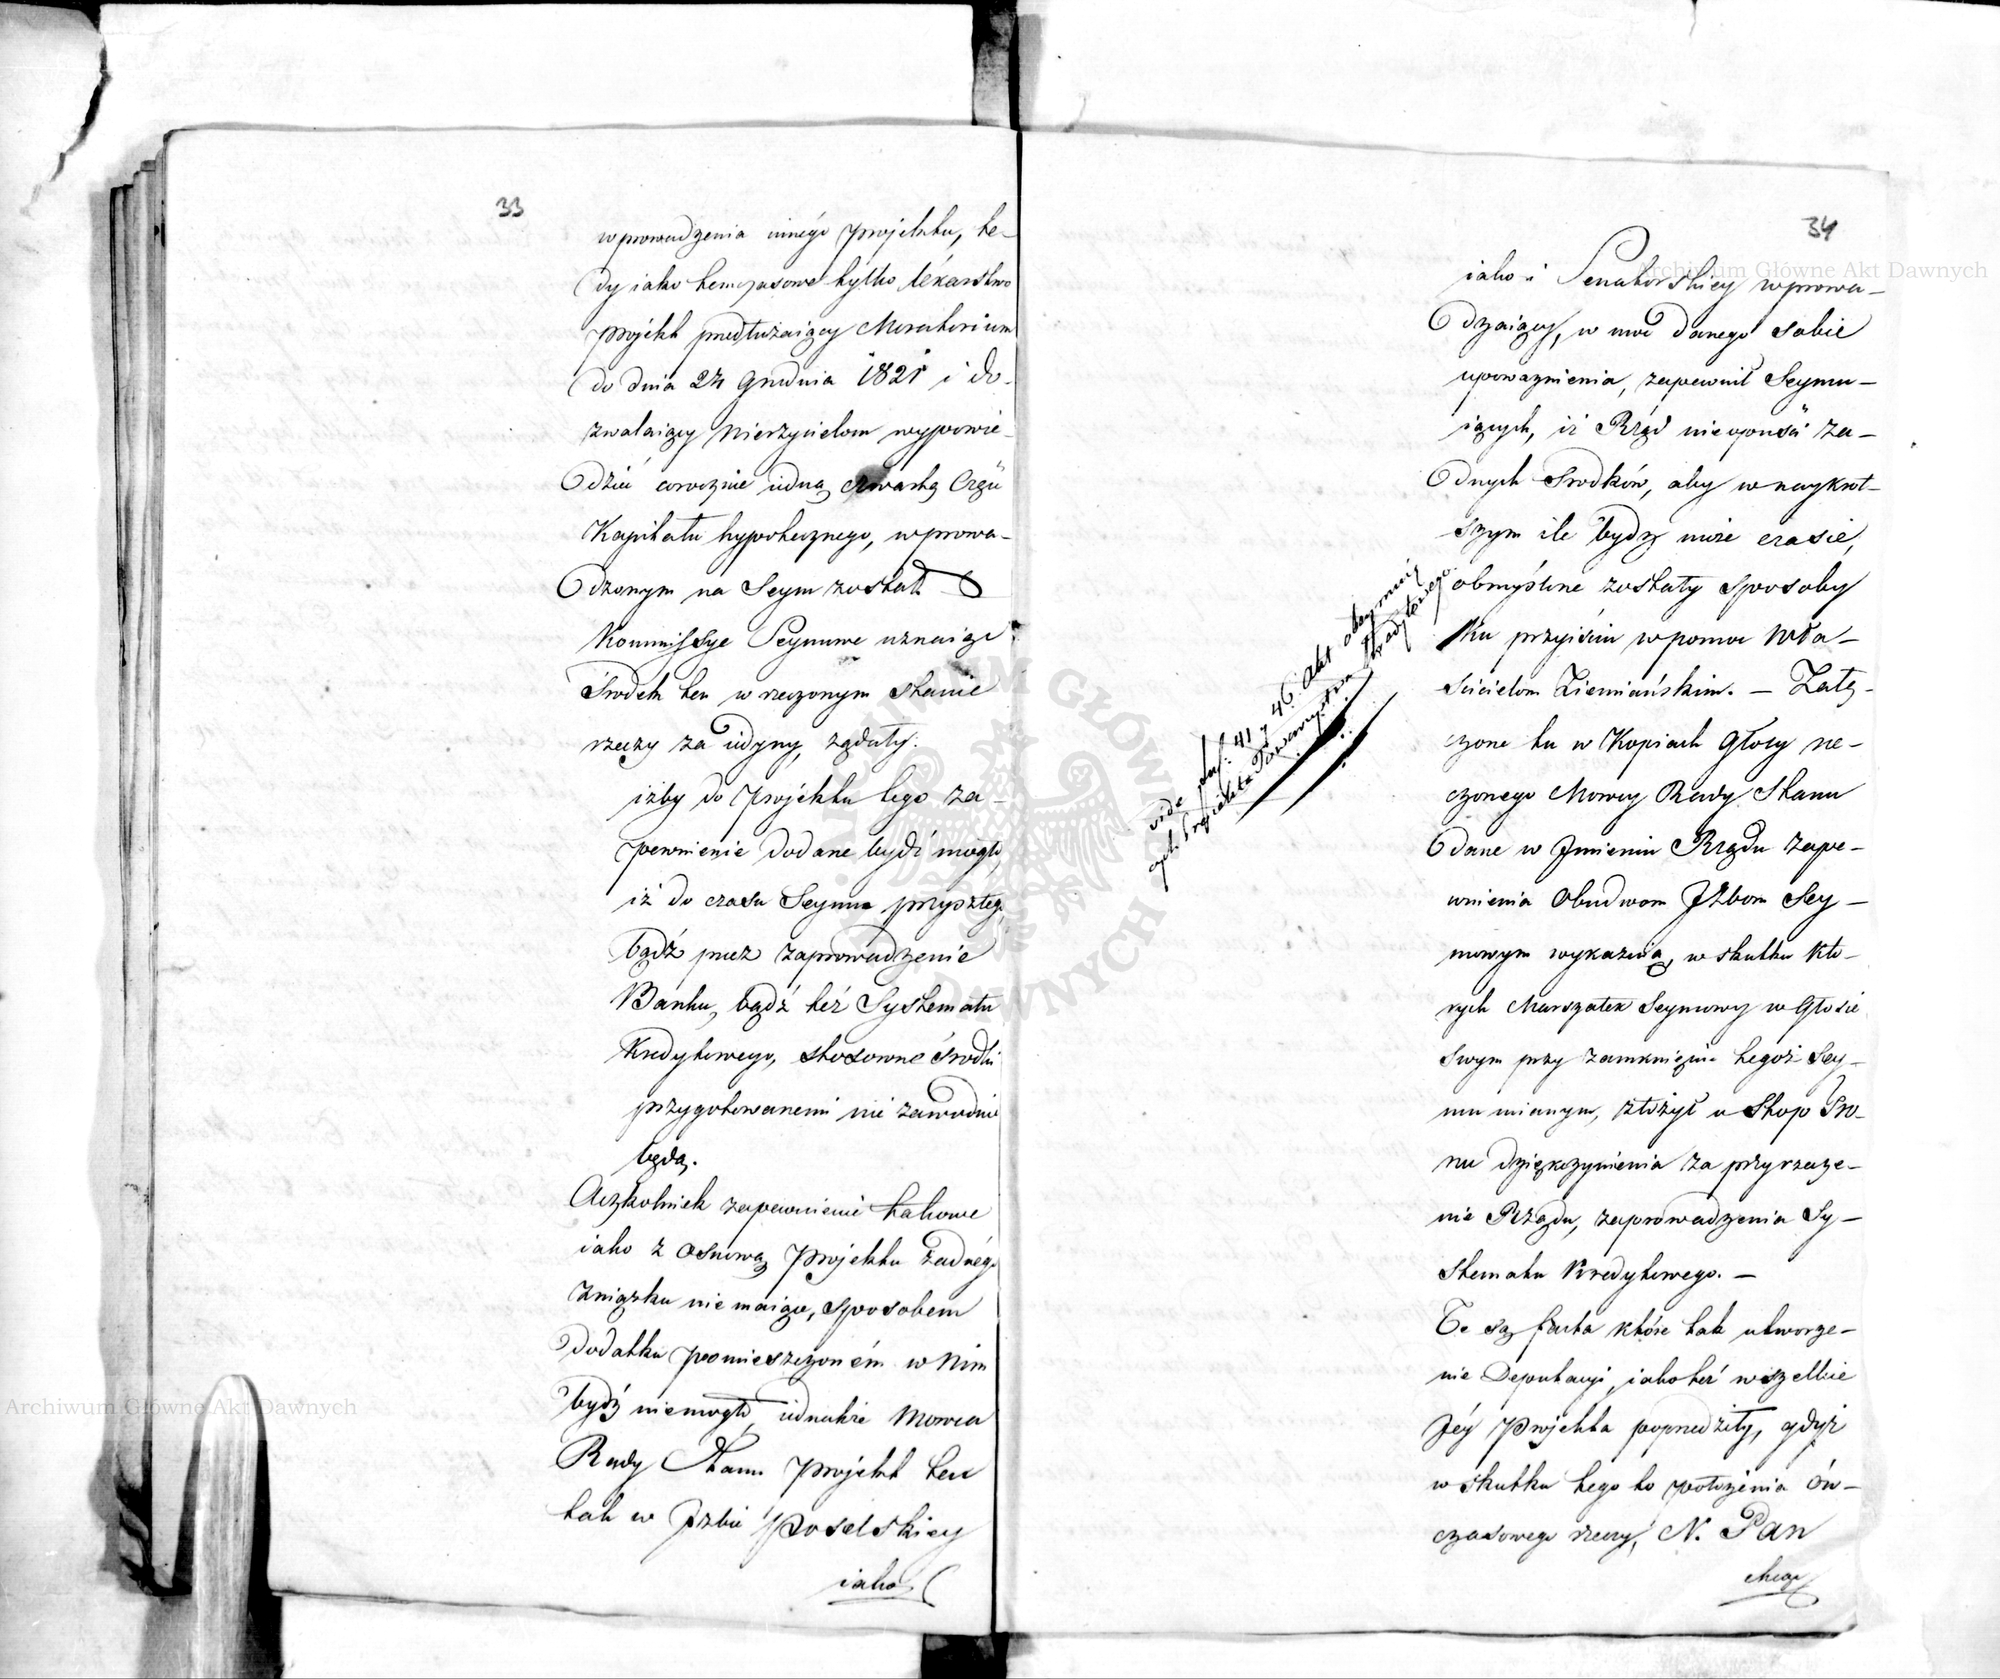 33
wprowadzenia innégo projektu, te-
dy iako temczasowe tylko lékarstwo
projekt przedłużaiący Moratorium
do dnia 24 Grudnia 1821 i do-
zwalaiący Wierzycielom wypowie-
dzieć corocznie iedną czwartą Część
Kapitału hypotecznego, wprowa-
dzonym na Seym został
Kommissye Seymowe uznaiąc
Środek ten w rzeczonym stanie
rzeczy za iedyny, żądały.
iżby do projektu tego za-
pewnienie dodane bydź mogło,
iż do czasu Seymu przyszłego,
bądź przez zaprowadzenie
Banku, bądź też Systematu
Kredytowego, stosowne środki
przygotowanemi nie zawodnie
będą.
Aczkolwiek zapewnienie takowe
iako z osnową projektu żadnégo
związku nie maiące, sposobem
dodatku pomieszczoném w nim
bydź niemogło, iednakże Mowca
Rady Stanu projekt ten
tak w Izbie Poselskiey
iako
34
iako i Senatorskiey wprowa-
dzaiący, w moc danego sobie
upoważnienia, zapewnił Seymu-
iących, iż Rząd nieopuści ża-
dnych Srodków, aby w naykrot-
szym ile bydź może czasie,
obmyślone zostały sposoby
Ku przyiściu w pomoc Wła-
ścicielom Ziemiańskim. — Załą-
czone tu w Kopiach Głosy rze-
czonego Mowcy Rady Stanu
dane w Imieniu Rządu zape-
wnienia Obudwom Izbom Sey-
mowym wykazuią, w skutku któ-
rych Marszałek Seymowy w Głosie
swym przy zamknięciu tegoż Sey-
mu mianym, złożył u Stop Tro-
nu dziękczynienia za przyrzecze-
nie Rządu, zaprowadzenia Sy-
stematu Kredytowego. —
Te są facta które tak utworze-
nie Deputacyi, iako też wszelkie
Jéy Projekta poprzedziły, gdyż
w skutku tego to położenia ów-
czasowego rzeczy, N. Pan
chcąc
vide pag: 41 y 46. Akt obeymuią-
cych Projekta Towarzystwa Kredytowego.
Archiwum Główne Akt Dawnych
Archiwum Główne Akt Dawnych
ARCHIWUM GŁÓWNE AKT DAWNYCH